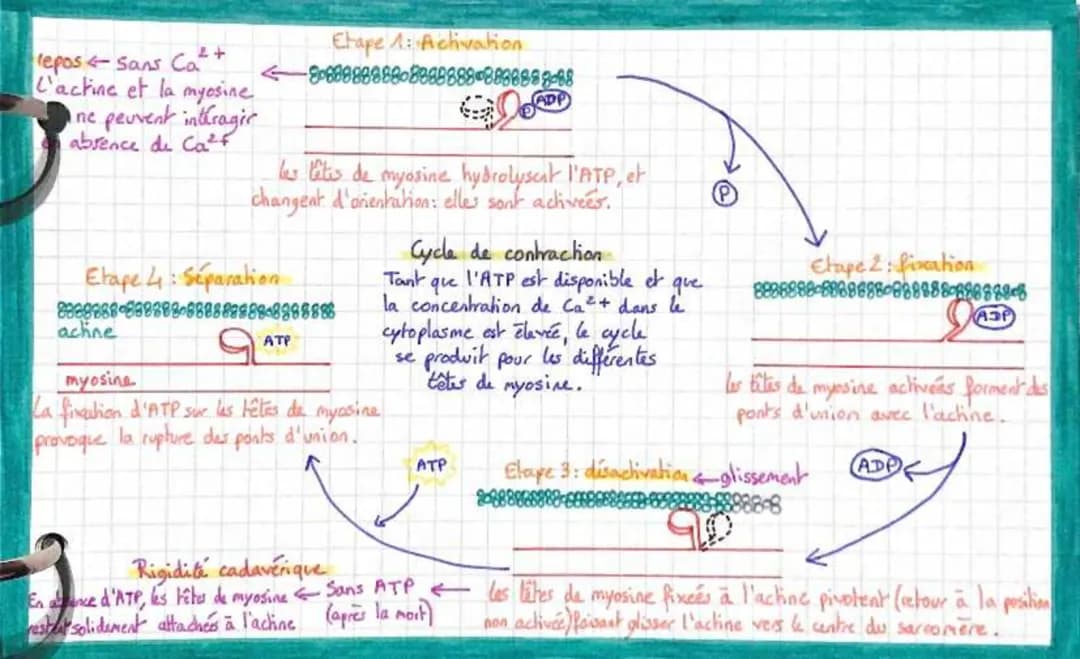 Etape 1: Activation
repos ← sans Ca²⁺
L'actine et la myosine
ne peuvent intéragir
en absence de Ca²⁺
P
ADP
les têtes de myosine hydrolysent l'ATP, et
changent d'orientation: elles sont activées.
P
Etape 2: fixation
ADP
les têtes de myosine activées forment des
ponts d'union avec l'actine.
Cycle de contraction
Tant que l'ATP est disponible et que
la concentration de Ca²⁺ dans le
cytoplasme est élevée, le cycle
se produit pour les différentes
têtes de myosine.
Etape 4: Séparation
actine
ATP
myosine
La fixation d'ATP sur les têtes de myosine
provoque la rupture des ponts d'union.
ATP
ADP
Etape 3: désactivation ← glissement
les têtes de myosine fixées à l'actine pivotent (retour à la position
non activée) faisant glisser l'actine vers le centre du sarcomère.
Rigidité cadavérique
En absence d'ATP, les têtes de myosine ← Sans ATP ←
restent solidement attachées à l'actine (après la mort)